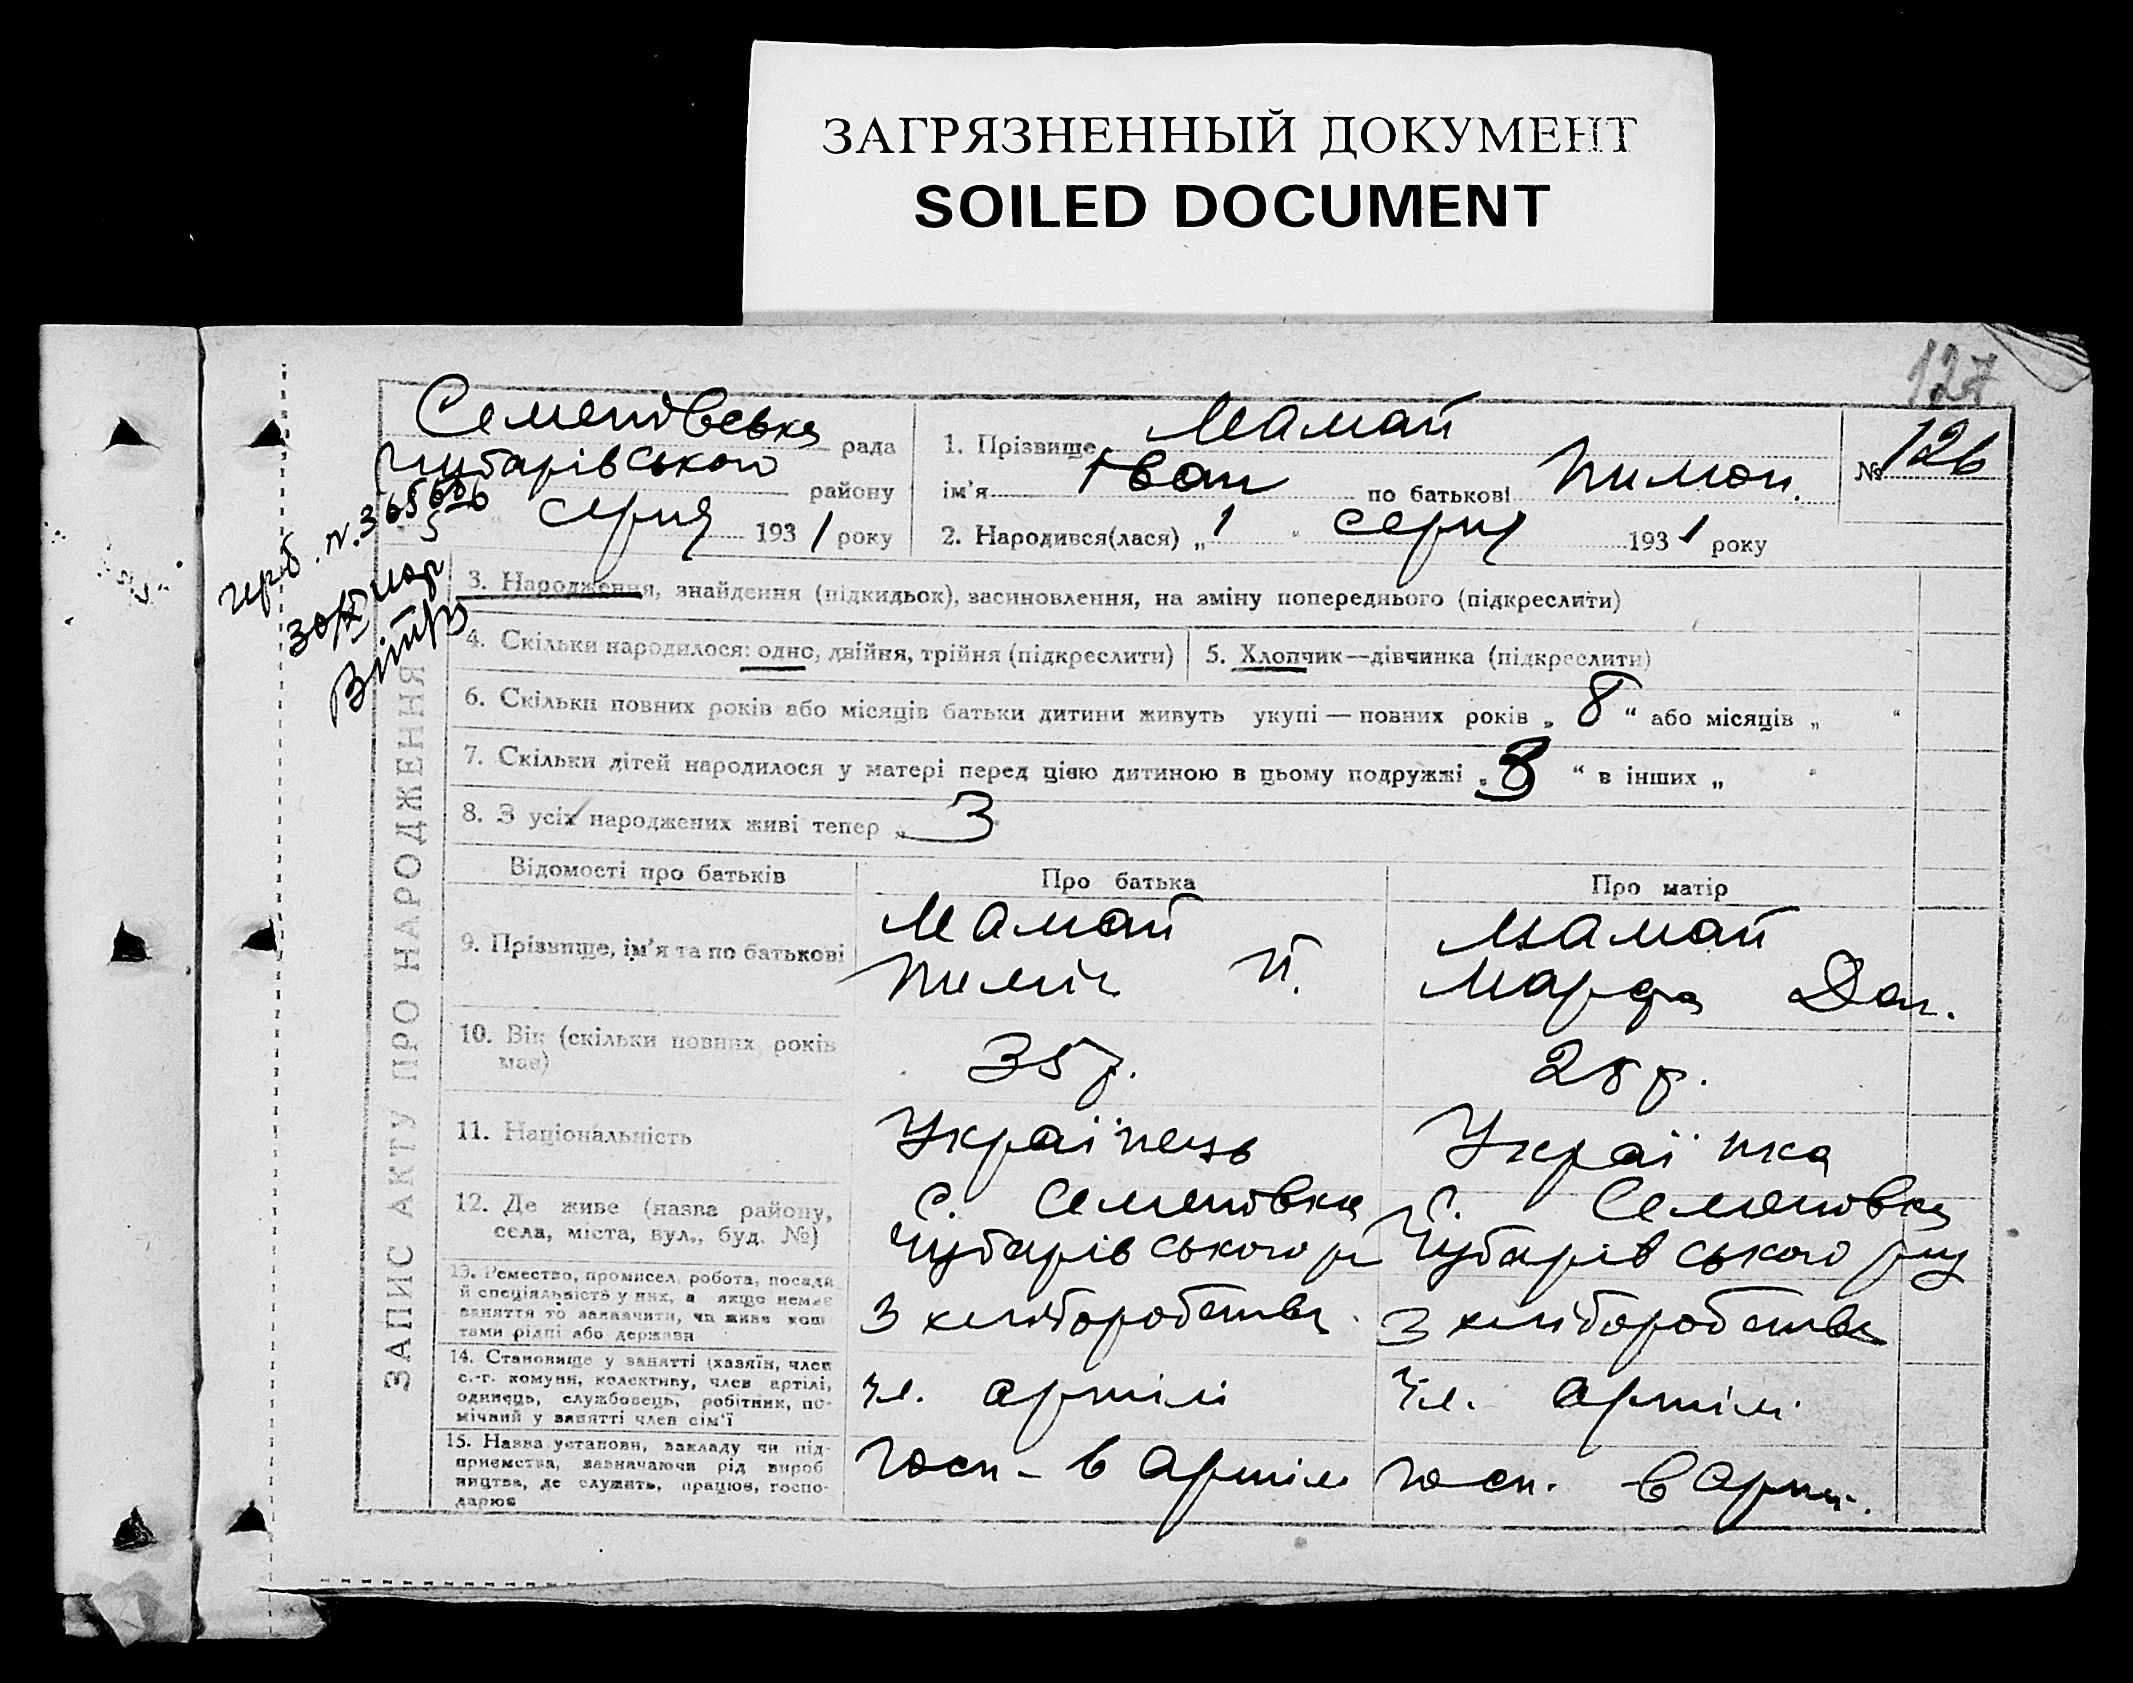 ЗАГРЯЗНЕННЫЙ ДОКУМЕНТ
SOILED DOCUMENT
127
Семенівська рада
Чубарівського району
5 " серпя 1931 року
1. Прізвище Мамай
ім'я Іван по батькові Пимон.
2. Народився(лася) „1 " серпя 1931 року
№ 126
ЗАПИС АКТУ ПРО НАРОДЖЕННЯ
3. Народження, знайдення (підкидьок), засиновлення, на зміну попереднього (підкреслити)
4. Скільки народилося: одно, двійня, трійня (підкреслити)
5. Хлопчик—дівчинка (підкреслити)
6. Скільки повних років або місяців батьки дитини живуть укупі — повних років „ 8 “ або місяців „ “
7. Скільки дітей народилося у матері перед цією дитиною в цьому подружжі „ 3 “ в інших „ “
8. З усіх народжених живі тепер „ 3
Відомості про батьків Про батька Про матір
9. Прізвище, ім'я та по батькові
Мамай
Пимін Й.
Мамай
Марфа Дан.
10. Вік (скільки повних років
має)
35 р.
28 р.
11. Національність
Українець
Українка
12. Де живе (назва району,
села, міста, вул., буд. №)
с. Семенівка
Чубарівського р
с. Семенівка
Чубарівського рну
13. Ремество, промисел, робота, посада
й спеціяльність у них, а якщо немає
заняття то зазначити, чи живе кош
тами рідні або держави
З хліборобства
З хліборобства
14. Становище у занятті (хазяїн, член
с.-г. комуни, колективу, член артілі,
одинець, службовець, робітник, по-
мічний у занятті член сім'ї
чл. артілі
чл. артілі
15. Назва установи, закладу чи під-
приємства, зазначаючи рід вироб
ництва, де служить, працює, госпо-
дарює
госп - в артілі
госп. в арті.